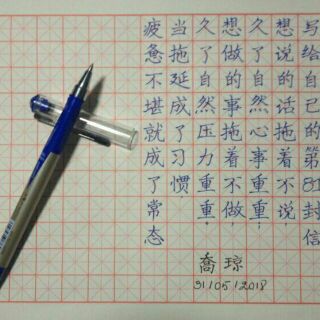 写给自己的第81封信
想说的话拖着不说
久了自然心事重重·
想做的事拖着不做·
久了自然压力重重·
当拖延成了习惯
疲惫不堪就成了常态
喬琼
31/05/2018